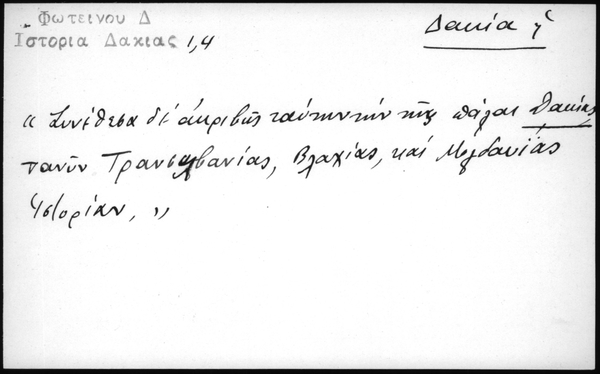 Φωτεινου Δ
Ιστορια Δακιας 1,4
Δακία ἡ
« Συνέθεσα δέ ἀκριβῶς ταύτην τήν τῆς πάλαι Δακίας
τανῦν Τρανσυλβανίας, Βλαχίας, καί Μολδαυΐας
Ἱστορίαν, »